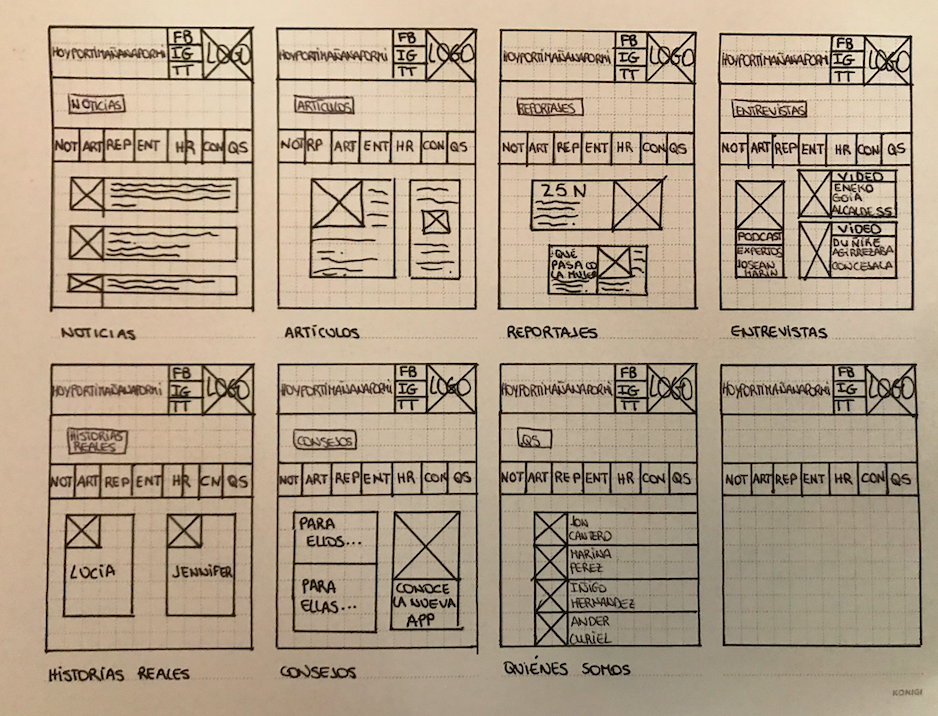 HOYPORTIMAÑANAPORMI
FB
IG
TT
LOGO
NOTICIAS
NOT ART REP ENT HR CON QS
NOTICIAS
HOYPORTIMAÑANAPORMI
FB
IG
TT
LOGO
ARTÍCULOS
NOT RP ART ENT HR CON QS
ARTÍCULOS
HOYPORTIMAÑANAPORMI
FB
IG
TT
LOGO
REPORTAJES
NOT ART REP ENT HR CON QS
25N
¿QUÉ
PASA CO
LA MUJER
REPORTAJES
HOYPORTIMAÑANAPORMI
FB
IG
TT
LOGO
ENTREVISTAS
NOT ART REP ENT HR CON QS
PODCAST
EXPERTOS
JOSEAN
MARIN
VIDEO
ENEKO
GOIA
ALCALDE SS
VIDEO
DUÑIKE
AGIRREZABA
CONCEJALA
ENTREVISTAS
HOYPORTIMAÑANAPORMI
FB
IG
TT
LOGO
HISTORIAS
REALES
NOT ART REP ENT HR CN QS
LUCÍA
JENNIFER
HISTORIAS REALES
HOYPORTIMAÑANAPORMI
FB
IG
TT
LOGO
CONSEJOS
NOT ART REP ENT HR CON QS
PARA
ELLOS...
PARA
ELLAS...
CONOCE
LA NUEVA
APP
CONSEJOS
HOYPORTIMAÑANAPORMI
FB
IG
TT
LOGO
QS
NOT ART REP ENT HR CON QS
JON
CANTERO
MARINA
PEREZ
IÑIGO
HERNANDEZ
ANDER
CURIEL
QUIÉNES SOMOS
HOYPORTIMAÑANAPORMI
FB
IG
TT
LOGO
NOT ART REP ENT HR CON QS
KONIGI